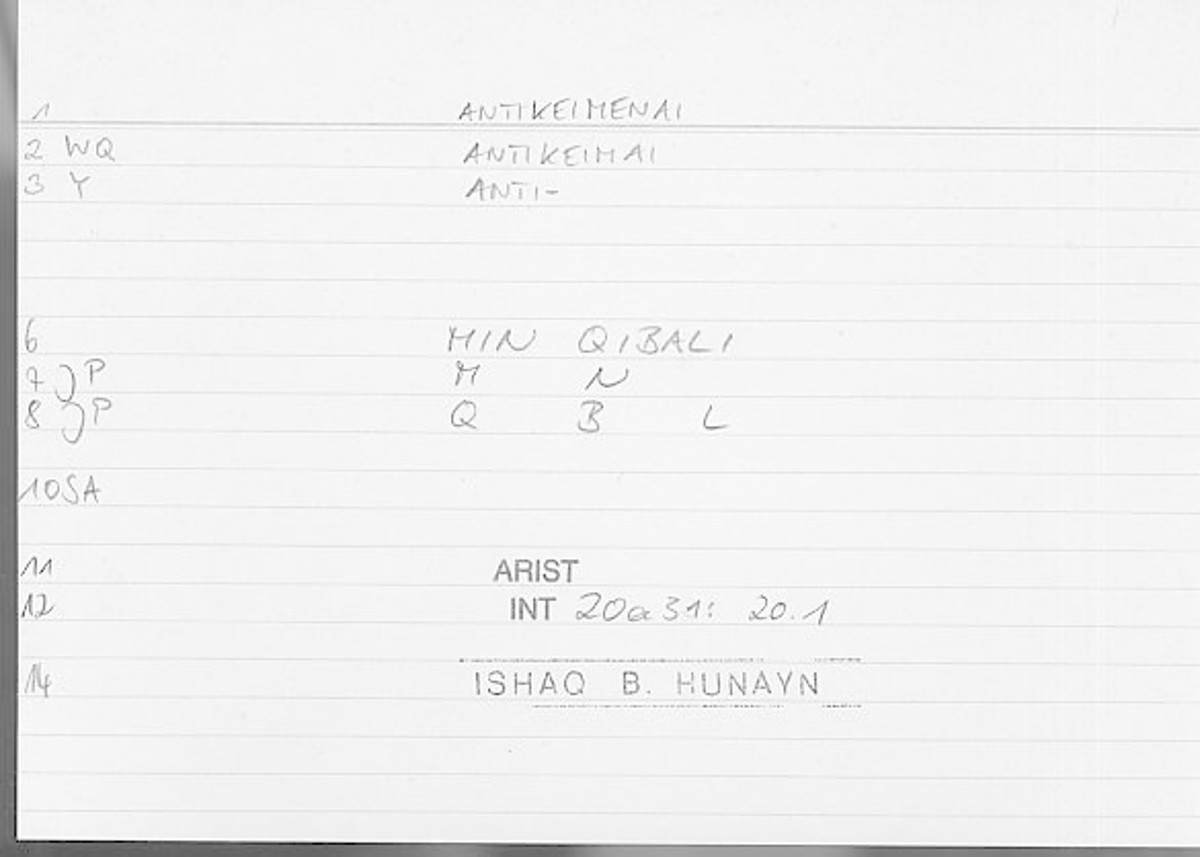 1 ANTIKEIMENAI
2 WQ ANTIKEIMAI
3 Y ANTI-
6 MIN QIBALI
7 JP M N
8 JP Q B L
10SA
11 ARIST
12 INT 20a31: 20.1
14 ISHAQ B. HUNAYN